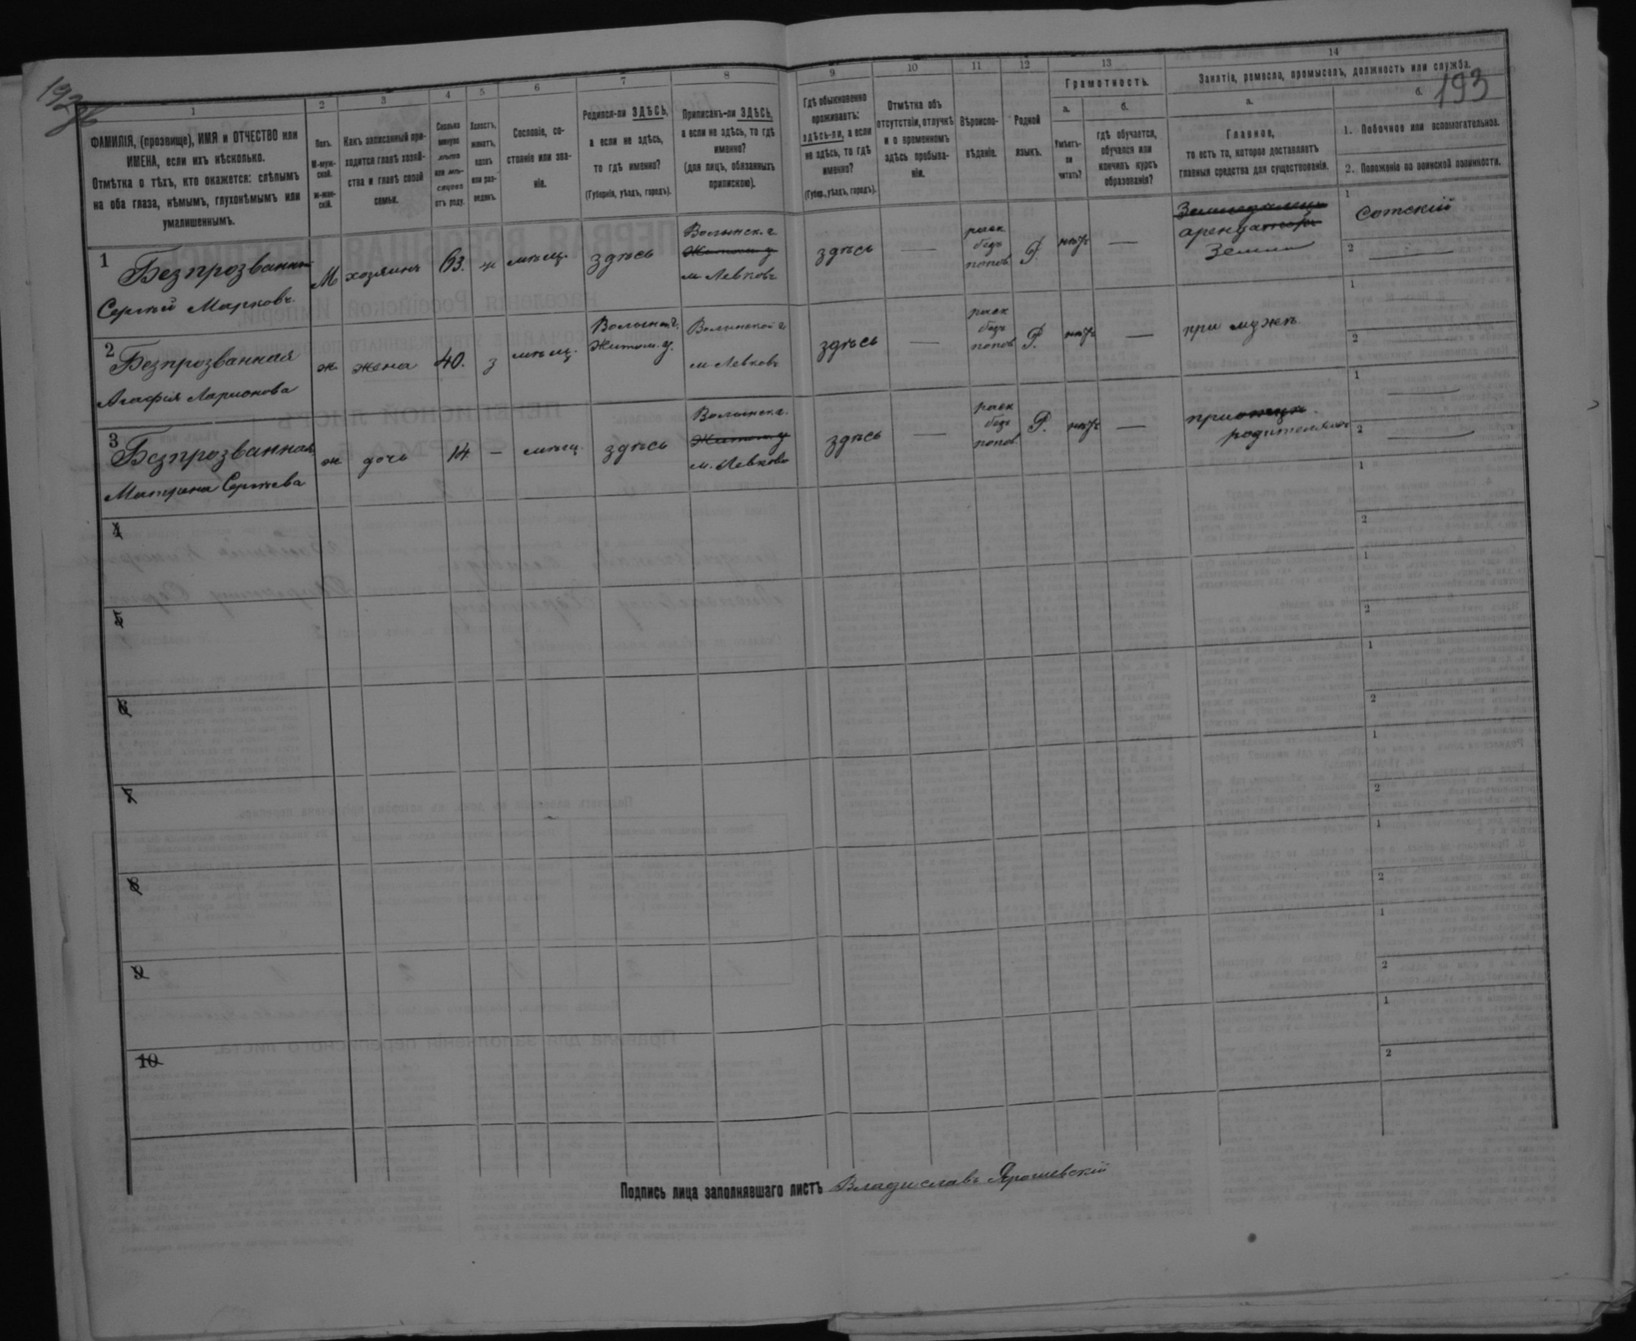 193
1
2
3
4
5
6
7
8
9
10
11
12
13
14
ФАМИЛІЯ, (прозвище), ИМЯ и ОТЧЕСТВО или
ИМЕНА, если ихъ нѣсколько.
Отмѣтка о тѣхъ, кто окажется: слѣпымъ
на оба глаза, нѣмымъ, глухонѣмымъ или
умалишеннымъ.
Полъ.
М-муж-
ской.
Ж-жен-
скій.
Какъ записанный при-
ходится главѣ хозяй-
ства и главѣ своей
семьи.
Сколько
минуло
лѣтъ
или мѣ-
сяцевъ
отъ роду.
Холостъ,
женатъ,
вдовъ
или раз-
веденъ.
Сословіе, со-
стояніе или зва-
ніе.
Родился-ли ЗДѢСЬ,
а если не здѣсь,
то гдѣ именно?
(Губернія, уѣздъ, городъ).
Приписанъ-ли ЗДѢСЬ,
а если не здѣсь, то гдѣ
именно?
(для лицъ, обязанныхъ
припискою).
Гдѣ обыкновенно
проживаетъ:
здѣсь-ли, а если
не здѣсь, то гдѣ
именно?
(Губер., уѣздъ, городъ).
Отмѣтка объ
отсутствіи, отлучкѣ
и о временномъ
здѣсь пребыва-
ніи.
Вѣроиспо-
вѣданіе.
Родной
языкъ.
Грамотность.
а.
б.
Умѣетъ-
ли
читать?
гдѣ обучается,
обучался или
кончилъ курсъ
образованія?
Занятіе, ремесло, промыселъ, должность или служба.
а.
б.
Главное,
то есть то, которое доставляетъ
главныя средства для существованія.
1. Побочное или вспомогательное.
2. Положеніе по воинской повинности.
1 Безпрозванный
Сергѣй Марковъ
М
хозяинъ
63.
ж
мѣщ.
здѣсь
Волынск. г.
Житом у
м Левковъ
здѣсь
—
раск
безъ
попов
Р.
нѣтъ
—
арендаторъ
Земли
1 Сотскій
2 —
2 Безпрозванная
Агафія Ларионова
ж
жена
40.
з
мѣщ.
Волынск г.
Житом. у.
Волынской г
м Левковъ
здѣсь
—
раск
безъ
попов
Р.
нѣтъ
—
при мужѣ
1
2 —
3 Безпрозванная
Матрона Сергѣева
ж
дочь
14
—
мѣщ.
здѣсь
Волынск г.
Житом у
м. Левково
здѣсь
—
раск
безъ
попов
Р.
нѣтъ
—
при отцѣ
родителяхъ
1 —
2 —
4
1
2
5
1
2
6
1
2
7
1
2
8
1
2
9
1
2
10
1
2
Подпись лица заполнявшаго листъ Владиславъ Ярошевскій